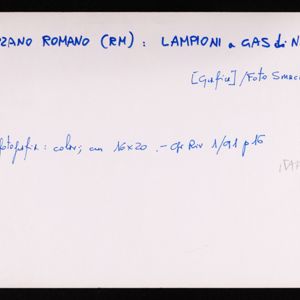 ZANO ROMANO (RM) : LAMPIONI a GAS di N
[Grafica] / Foto Smac
fotografia : color ; cm 16x20 . - Cfr Riv 1/91 p 16
ITAP